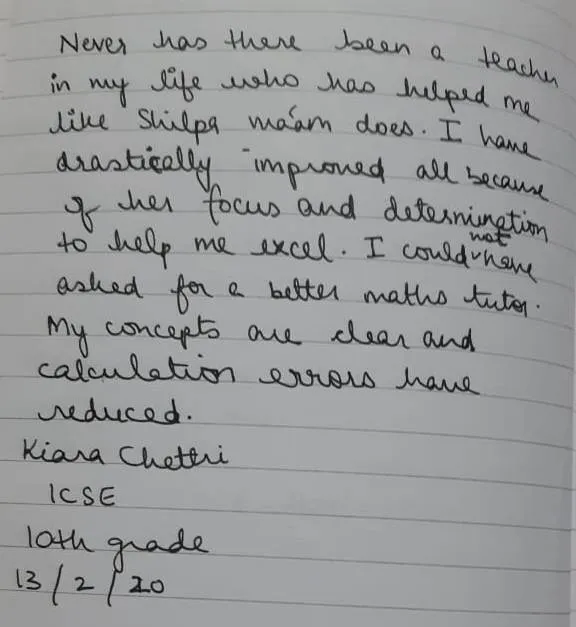 Never has there been a teacher
in my life who has helped me
like Shilpa ma'am does. I have
drastically improved all because
of her focus and determination
to help me excel. I could not have
asked for a better maths tutor.
My concepts are clear and
calculation errors have
reduced.
Kiara Chettri
ICSE
10th grade
13/2/20